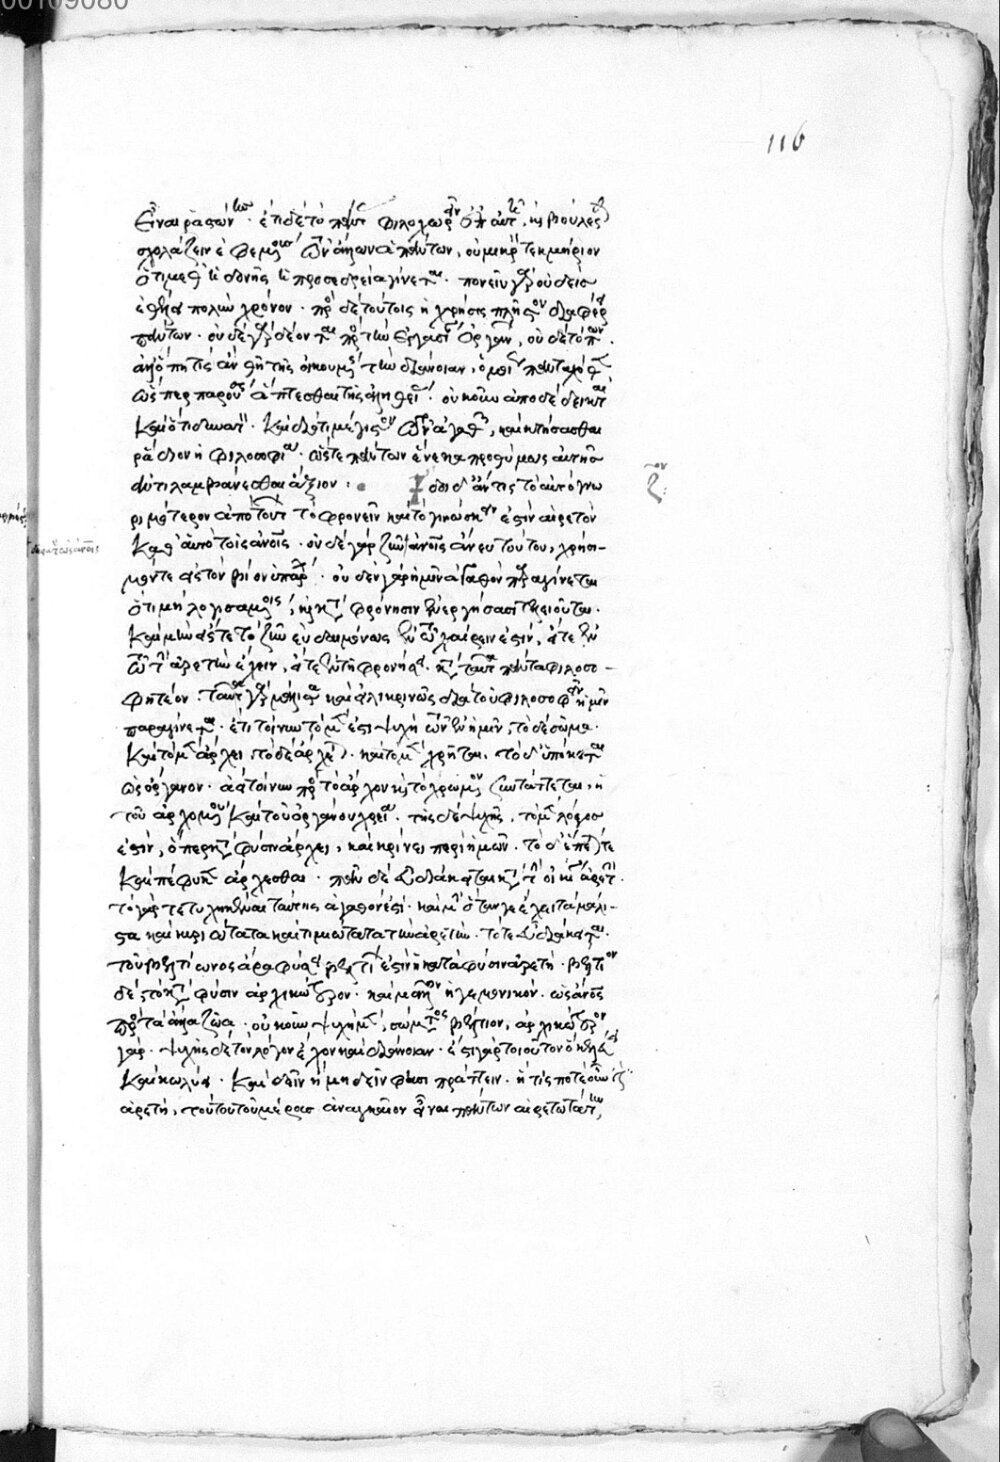 εἶναι ῥαστώνην· ἔτι δὲ τὸ πάντας φιλοχωρεῖν ἐπ' αὐτῇ, καὶ βούλεσθαι
σχολάζειν ἐφεμένοις τῶν ἄλλων ἁπάντων, οὐ μικρὸν τεκμήριον
ὅτι μεθ' ἡδονῆς ἡ προσεδρεία γίνεται· πονεῖν γὰρ οὐδεὶς
ἐθέλει πολὺν χρόνον· πρὸς δὲ τούτοις ἡ χρῆσις πλεῖστον διαφέρει
πάντων· οὐδὲ γὰρ δέονται πρὸς τὴν ἐργασίαν ὀργάνων, οὐδὲ τόπων·
ἀλλ' ὅπη τίς ἂν θῇ τῆς οἰκουμένης τὴν διάνοιαν, ὁμοίως πανταχόθεν
ὥσπερ παρούσης ἅπτεσθαι τῆς ἀληθείας· οὐκοῦν ἀποδέδεικται
καὶ ὅτι δυνατὸν· καὶ διότι μέγιστον τῶν ἀγαθῶν, καὶ κτήσασθαι
ῥᾴδιον ἡ φιλοσοφία· ὥστε πάντων ἕνεκα προθύμως αὐτῆς
ἀντιλαμβάνεσθαι ἄξιον· Ἴδοι δ' ἄν τις τὸ αὐτὸ γνω
ριμώτερον ἀπὸ τούτων· τὸ φρονεῖν καὶ τὸ γινώσκειν ἐστὶν αἱρετὸν
καθ' αὑτὸ τοῖς ἀνθρώποις· οὐδὲ γὰρ ζῆν ἀνθρώποις ἄνευ τούτου, χρήσι-
μόν τε εἰς τὸν βίον ὑπάρχει· οὐδὲν γὰρ ἡμῖν ἀγαθὸν παραγίνεται
ὅτι μὴ λογισαμένοις, καὶ κατὰ φρόνησιν ἐνεργήσασι τελειοῦται·
καὶ μὴν εἴτε τὸ ζῆν εὐδαιμόνως ἐν τῷ χαίρειν ἐστίν, εἴτε ἐν
τῷ τὴν ἀρετὴν ἔχειν, εἴτε ἐν τῇ φρονήσει· κατὰ ταῦτα πάντα φιλοσο-
φητέον· ταῦτα γὰρ μάλιστα καὶ εἰλικρινῶς διὰ τοῦ φιλοσοφεῖν ἡμῖν
παραγίνεται· ἔτι τοίνυν τὸ μέν ἐστι ψυχὴ τῶν ἐν ἡμῖν, τὸ δὲ σῶμα·
καὶ τὸ μὲν ἄρχει, τὸ δὲ ἄρχεται· καὶ τὸ μὲν χρῆται, τὸ δ' ὑπόκειται
ὡς ὄργανον· ἀεὶ τοίνυν πρὸς τὸ ἄρχον καὶ τὸ χρώμενον συντάττεται, ἡ
τοῦ ἀρχομένου καὶ τοῦ ὀργάνου χρεία· τῆς δὲ ψυχῆς, τὸ μὲν λόγος
ἐστίν, ὅπερ κατὰ φύσιν ἄρχει, καὶ κρίνει περὶ ἡμῶν· τὸ δ' ἕπεταί τε
καὶ πέφυκεν ἄρχεσθαι· πᾶν δὲ εὖ διάκειται κατὰ τὴν οἰκείαν ἀρετήν·
τὸ γὰρ τετυχηκέναι ταύτης ἀγαθόν ἐστι· καὶ μὴν ὅταν γε ἔχει τὰ μάλι-
στα καὶ κυριώτατα καὶ τιμιώτατα τὴν ἀρετὴν· τότε εὖ διάκειται·
τοῦ βελτίωνος ἄρα φύσει βελτίων ἐστὶν ἡ κατὰ φύσιν ἀρετή· βέλτιον
δὲ τὸ κατὰ φύσιν ἀρχικώτερον· καὶ μᾶλλον ἡγεμονικόν· ὡς ἄνθρωπος
πρὸς τὰ ἄλλα ζῶα· οὐκοῦν ψυχὴ μὲν, σώματος βέλτιον, ἀρχικώτερον
γάρ· ψυχῆς δὲ τὸ λόγον ἔχον καὶ διάνοιαν· ἔστι γὰρ τοιοῦτον ὃ κελεύει
καὶ κωλύει· καὶ δεῖν ἢ μὴ δεῖν φησι πράττειν· ἥ τις ποτὲ οὖν ἐστιν
ἀρετή, τούτου τοῦ μέρους ἀναγκαῖον εἶναι πάντων αἱρετωτάτην,